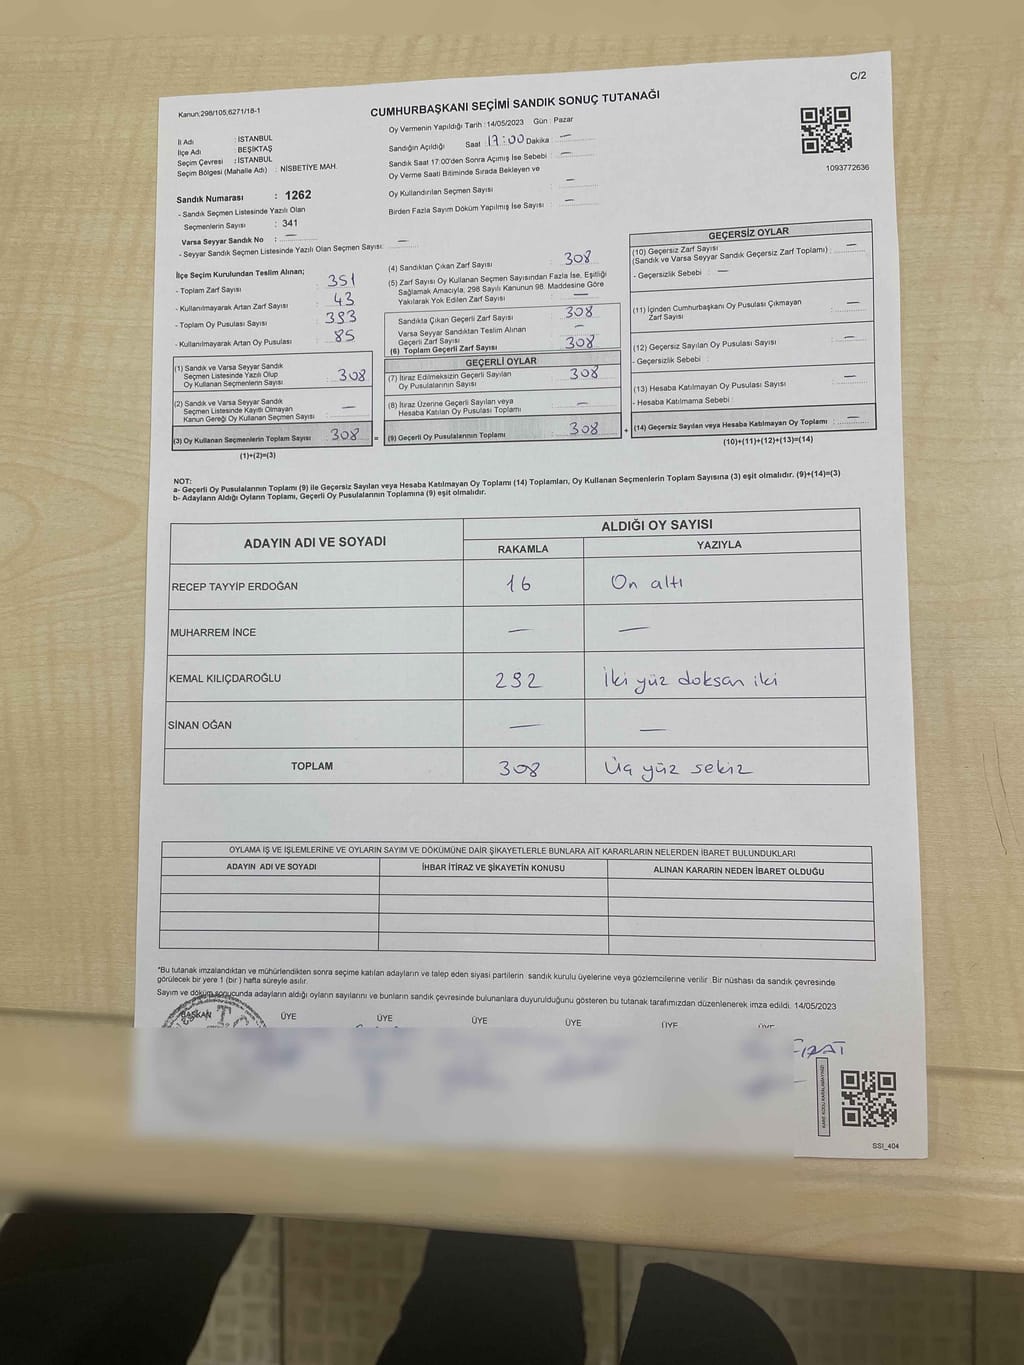 C/2
Kanun;298/105;6271/18-1
CUMHURBAŞKANI SEÇİMİ SANDIK SONUÇ TUTANAĞI
İl Adı : İSTANBUL
İlçe Adı : BEŞİKTAŞ
Seçim Çevresi : İSTANBUL
Seçim Bölgesi (Mahalle Adı) : NİSBETİYE MAH.
Sandık Numarası : 1262
- Sandık Seçmen Listesinde Yazılı Olan
Seçmenlerin Sayısı : 341
Varsa Seyyar Sandık No : —
- Seyyar Sandık Seçmen Listesinde Yazılı Olan Seçmen Sayısı: —
Oy Vermenin Yapıldığı Tarih : 14/05/2023 Gün : Pazar
Sandığın Açıldığı Saat 17:00 Dakika : —
Sandık Saat 17:00'den Sonra Açımış İse Sebebi : —
Oy Verme Saati Bitiminde Sırada Bekleyen ve
Oy Kullandırılan Seçmen Sayısı : —
Birden Fazla Sayım Döküm Yapılmış İse Sayısı : —
1093772636
İlçe Seçim Kurulundan Teslim Alınan;
- Toplam Zarf Sayısı : 351
- Kullanılmayarak Artan Zarf Sayısı : 43
- Toplam Oy Pusulası Sayısı : 393
- Kullanılmayarak Artan Oy Pusulası : 85
(1) Sandık ve Varsa Seyyar Sandık
Seçmen Listesinde Yazılı Olup
Oy Kullanan Seçmenlerin Sayısı : 308
(2) Sandık ve Varsa Seyyar Sandık
Seçmen Listesinde Kayıtlı Olmayan
Kanun Gereği Oy Kullanan Seçmen Sayısı : —
(3) Oy Kullanan Seçmenlerin Toplam Sayısı : 308 =
(1)+(2)=(3)
(4) Sandıktan Çıkan Zarf Sayısı : 308
(5) Zarf Sayısı Oy Kullanan Seçmen Sayısından Fazla İse, Eşitliği
Sağlamak Amacıyla, 298 Sayılı Kanunun 98. Maddesine Göre
Yakılarak Yok Edilen Zarf Sayısı : —
Sandıkta Çıkan Geçerli Zarf Sayısı : 308
Varsa Seyyar Sandıktan Teslim Alınan
Geçerli Zarf Sayısı : —
(6) Toplam Geçerli Zarf Sayısı : 308
GEÇERLİ OYLAR
(7) İtiraz Edilmeksizin Geçerli Sayılan
Oy Pusulalarının Sayısı : 308
(8) İtiraz Üzerine Geçerli Sayılan veya
Hesaba Katılan Oy Pusulası Toplamı : —
(9) Geçerli Oy Pusulalarının Toplamı : 308 +
GEÇERSİZ OYLAR
(10) Geçersiz Zarf Sayısı
(Sandık ve Varsa Seyyar Sandık Geçersiz Zarf Toplamı) : —
- Geçersizlik Sebebi : —
(11) İçinden Cumhurbaşkanı Oy Pusulası Çıkmayan
Zarf Sayısı : —
(12) Geçersiz Sayılan Oy Pusulası Sayısı : —
- Geçersizlik Sebebi :
(13) Hesaba Katılmayan Oy Pusulası Sayısı : —
- Hesaba Katılmama Sebebi :
(14) Geçersiz Sayılan veya Hesaba Katılmayan Oy Toplamı : —
(10)+(11)+(12)+(13)=(14)
NOT:
a- Geçerli Oy Pusulalarının Toplamı (9) ile Geçersiz Sayılan veya Hesaba Katılmayan Oy Toplamı (14) Toplamları, Oy Kullanan Seçmenlerin Toplam Sayısına (3) eşit olmalıdır. (9)+(14)=(3)
b- Adayların Aldığı Oyların Toplamı, Geçerli Oy Pusulalarının Toplamına (9) eşit olmalıdır.
ADAYIN ADI VE SOYADI
ALDIĞI OY SAYISI
RAKAMLA YAZIYLA
RECEP TAYYİP ERDOĞAN 16 On altı
MUHARREM İNCE — —
KEMAL KILIÇDAROĞLU 292 İki yüz doksan iki
SİNAN OĞAN — —
TOPLAM 308 Üç yüz sekiz
OYLAMA İŞ VE İŞLEMLERİNE VE OYLARIN SAYIM VE DÖKÜMÜNE DAİR ŞİKAYETLERLE BUNLARA AİT KARARLARIN NELERDEN İBARET BULUNDUKLARI
ADAYIN ADI VE SOYADI İHBAR İTİRAZ VE ŞİKAYETİN KONUSU ALINAN KARARIN NEDEN İBARET OLDUĞU
*Bu tutanak imzalandıktan ve mühürlendikten sonra seçime katılan adayların ve talep eden siyasi partilerin sandık kurulu üyelerine veya gözlemcilerine verilir. Bir nüshası da sandık çevresinde
görülecek bir yere 1 (bir ) hafta süreyle asılır.
Sayım ve döküm sonucunda adayların aldığı oyların sayılarını ve bunların sandık çevresinde bulunanlara duyurulduğunu gösteren bu tutanak tarafımızdan düzenlenerek imza edildi. 14/05/2023
BAŞKAN ÜYE ÜYE ÜYE ÜYE ÜYE ÜYE
FIRAT
SSI_404